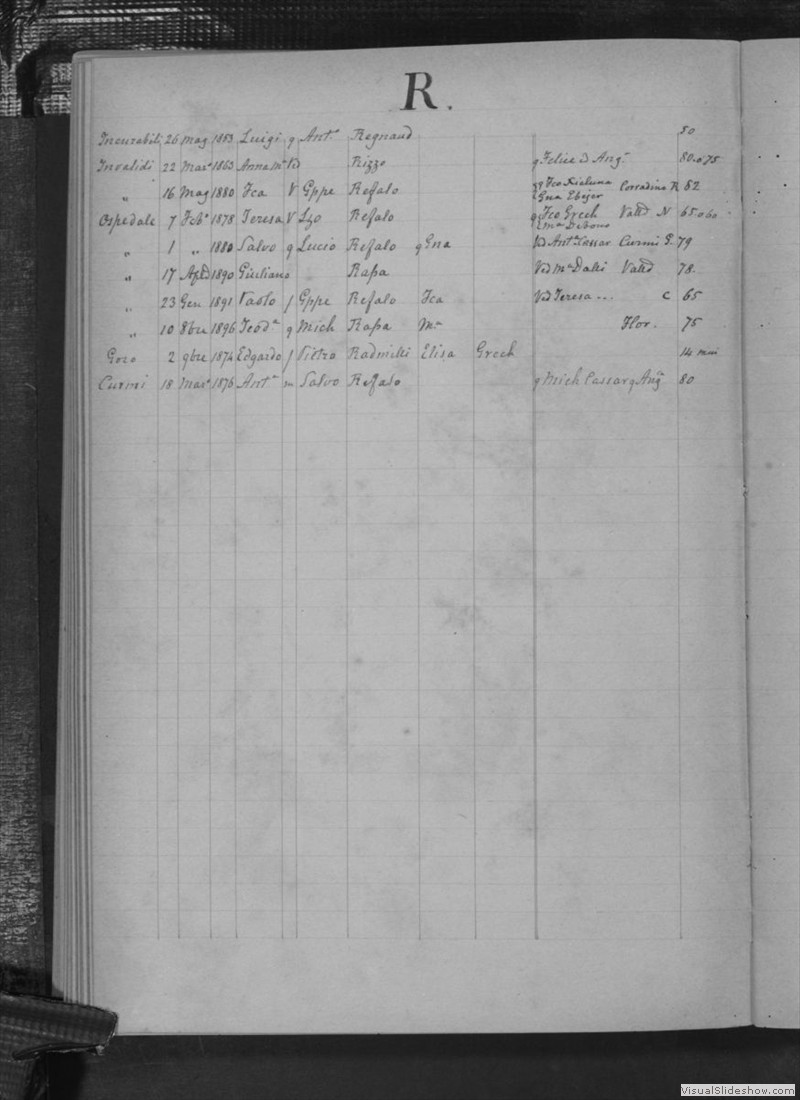 R.
Incurabili 26 Mag 1853 Luigi q Ant.o Regnaud 50
Invalidi 22 Mar.o 1863 Anna M.a Ved Rizzo q Felice d Ang.a 80 o 75
" 16 Mag 1880 Fca V Gppe Refalo Fco Corradino R 82
Gna Ebejer
Ospedale 7 Feb.o 1878 Teresa V Lzo Refalo q Fco Grech Vallt.a N 65 o 60
M.a Debono
" 1 " 1880 Salvo q Lucio Refalo q Gna Ved Ant.a Cassar Curmi G. 79
" 17 Aple 1890 Giuliano Rapa Ved M.a Dalli Vallt.a 78.
" 23 Gen 1891 Paolo f Gppe Refalo Fca Ved Teresa ... C 65
" 10 8bre 1896 Teod.a q Mich Rapa M.a Flor. 75
Gozo 2 9bre 1874 Edgardo f Pietro Radmilli Elisa Grech 14 mesi
Curmi 18 Mar.o 1876 Ant.a m Salvo Refalo q Mich Cassar q Ang.a 80
VisualSlideshow.com